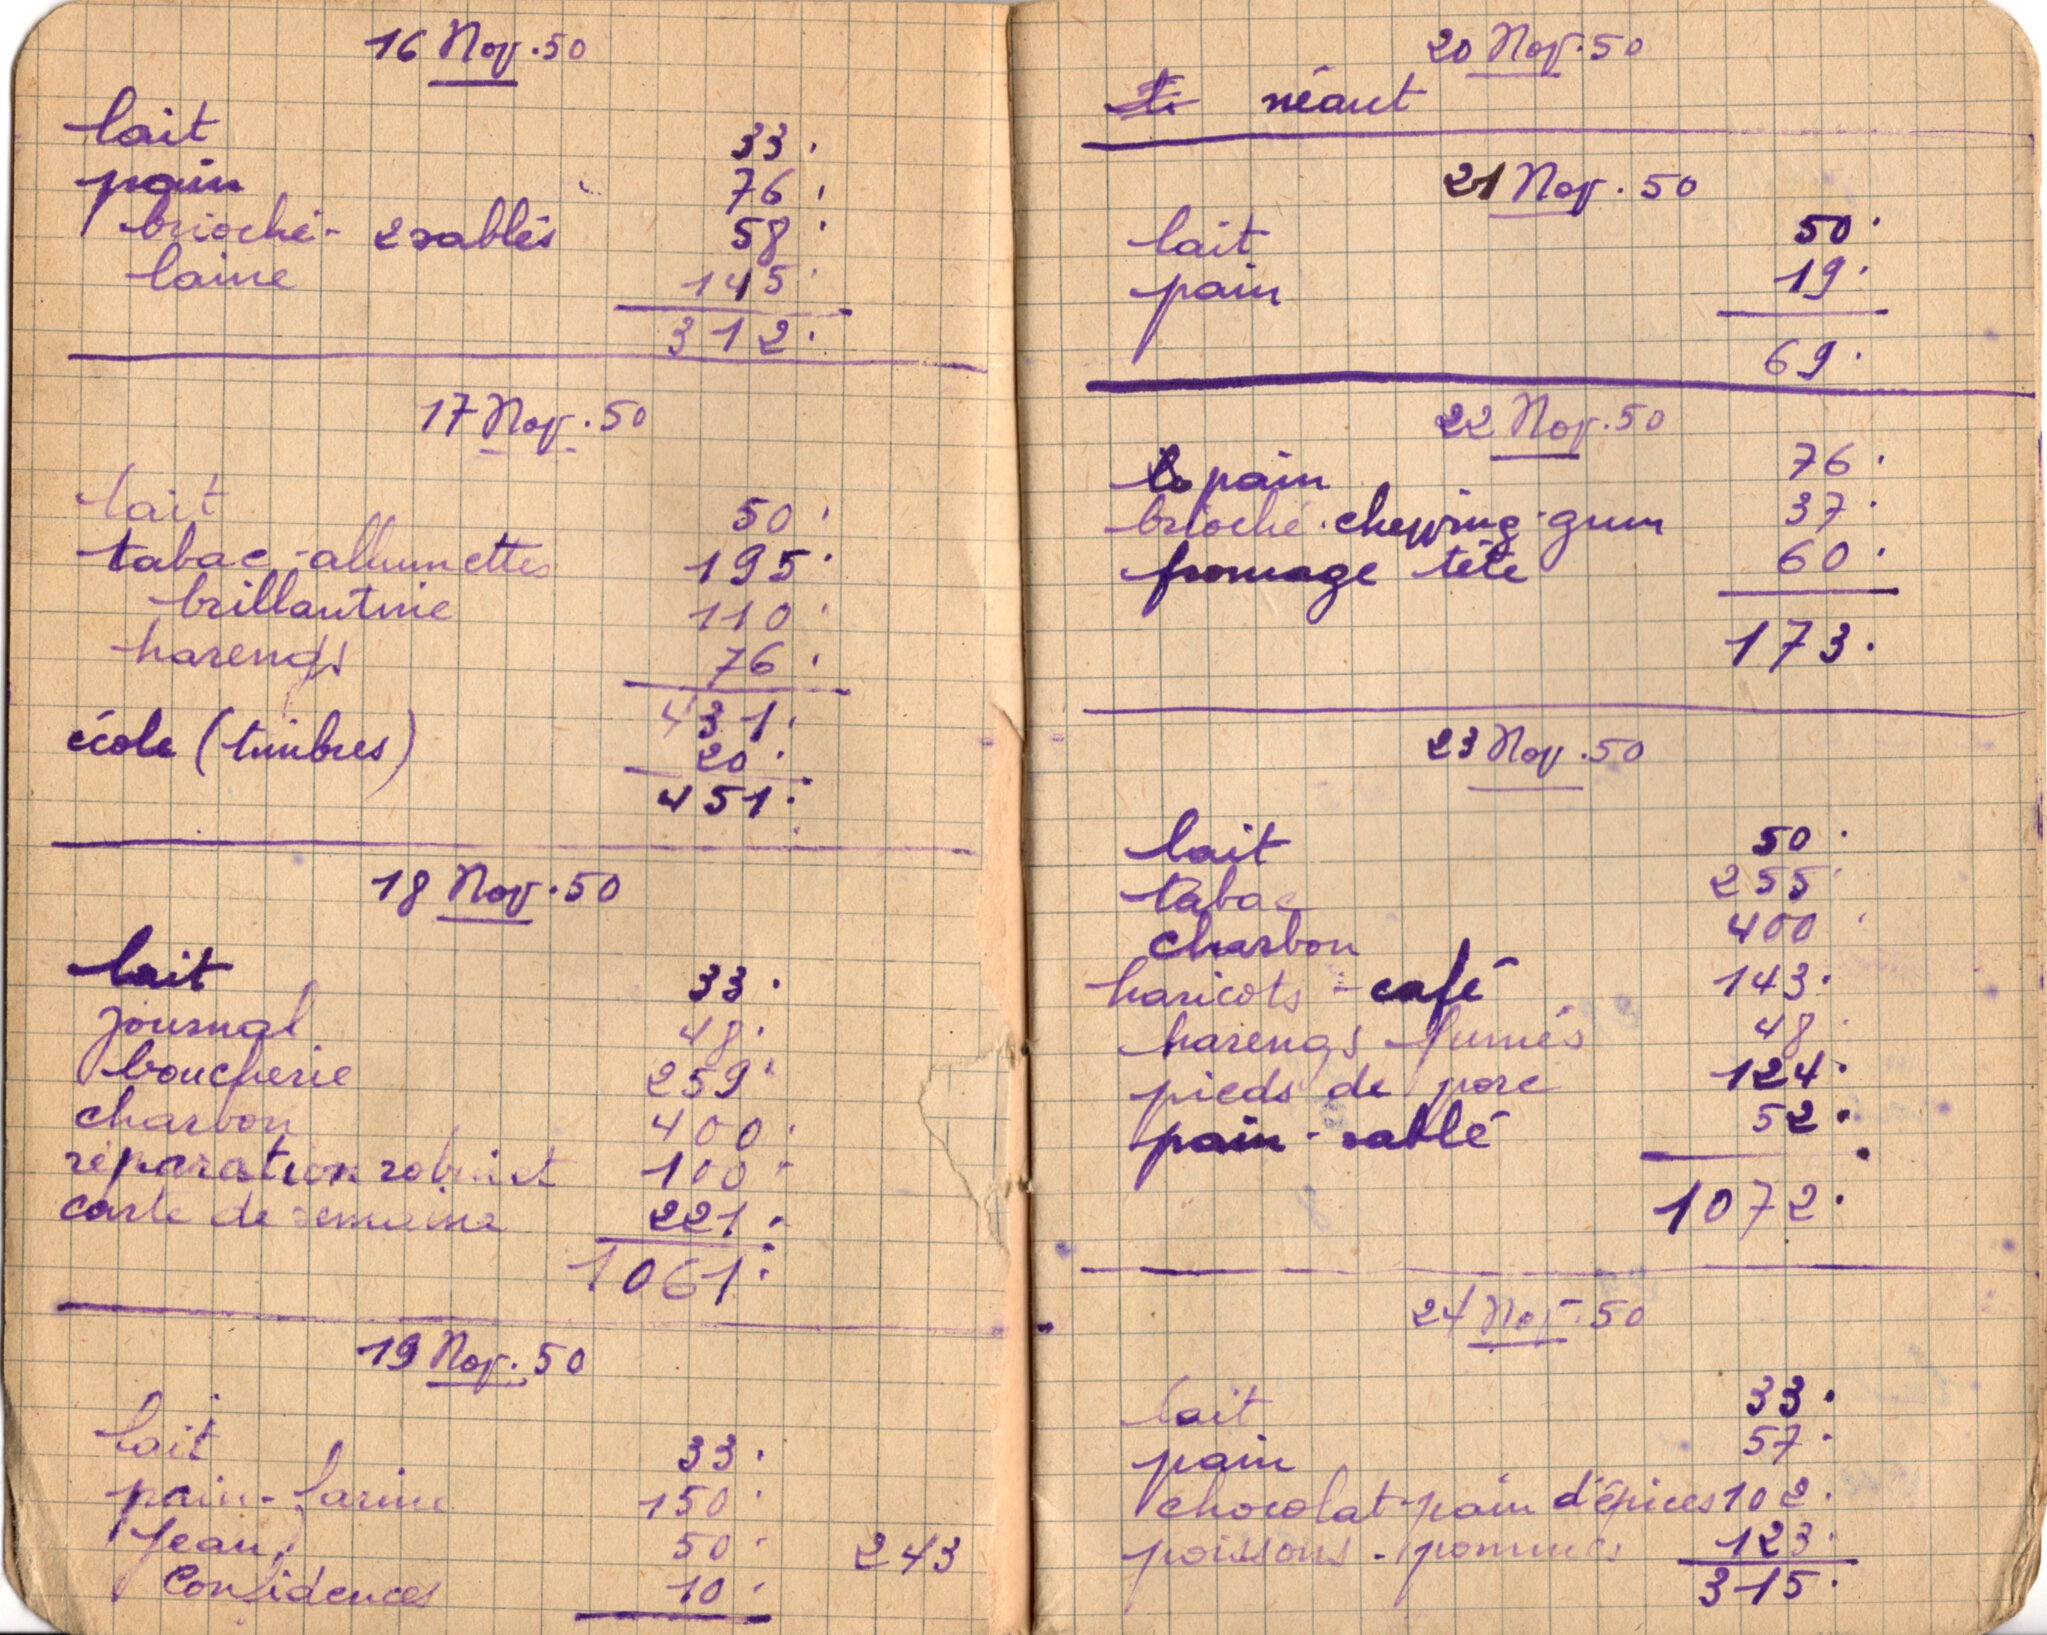 16 Nov. 50
lait 33.
pain 76.
brioche - 2 sablés 58.
laine 145.
312.
17 Nov. 50
lait 50.
tabac - allumettes 195.
brillantine 110.
harengs 76.
431.
école (timbres) 20.
451.
18 Nov. 50
lait 33.
journal 48.
boucherie 259.
charbon 400.
réparation robinet 100.
carte de semaine 221.
1061.
19 Nov. 50
lait 33.
pain - farine 150.
Jean 50. 243
Confidences 10.
20 Nov. 50
néant
21 Nov. 50
lait 50.
pain 19.
69.
22 Nov. 50
pain 76.
brioche - chewing-gum 37.
fromage tête 60.
173.
23 Nov. 50
lait 50.
tabac 255.
charbon 400.
haricots - café 143.
harengs fumés 48.
pieds de porc 124.
pain - sablé 52.
1072.
24 Nov. 50
lait 33.
pain 57.
chocolat - pain d'épices 102.
poissons - pommes 123.
315.